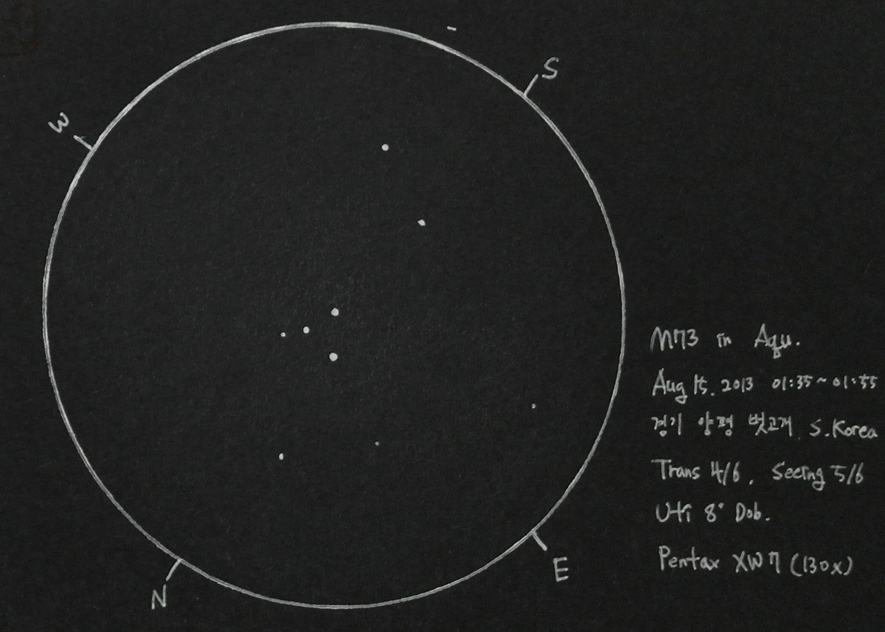 S
W
M73 in Aqu.
Aug 15. 2013 01:35~01:55
경기 양평 벗고개, S.Korea
Trans 4/6, Seeing 5/6
8" Dob.
Pentax XW7 (130x)
E
N